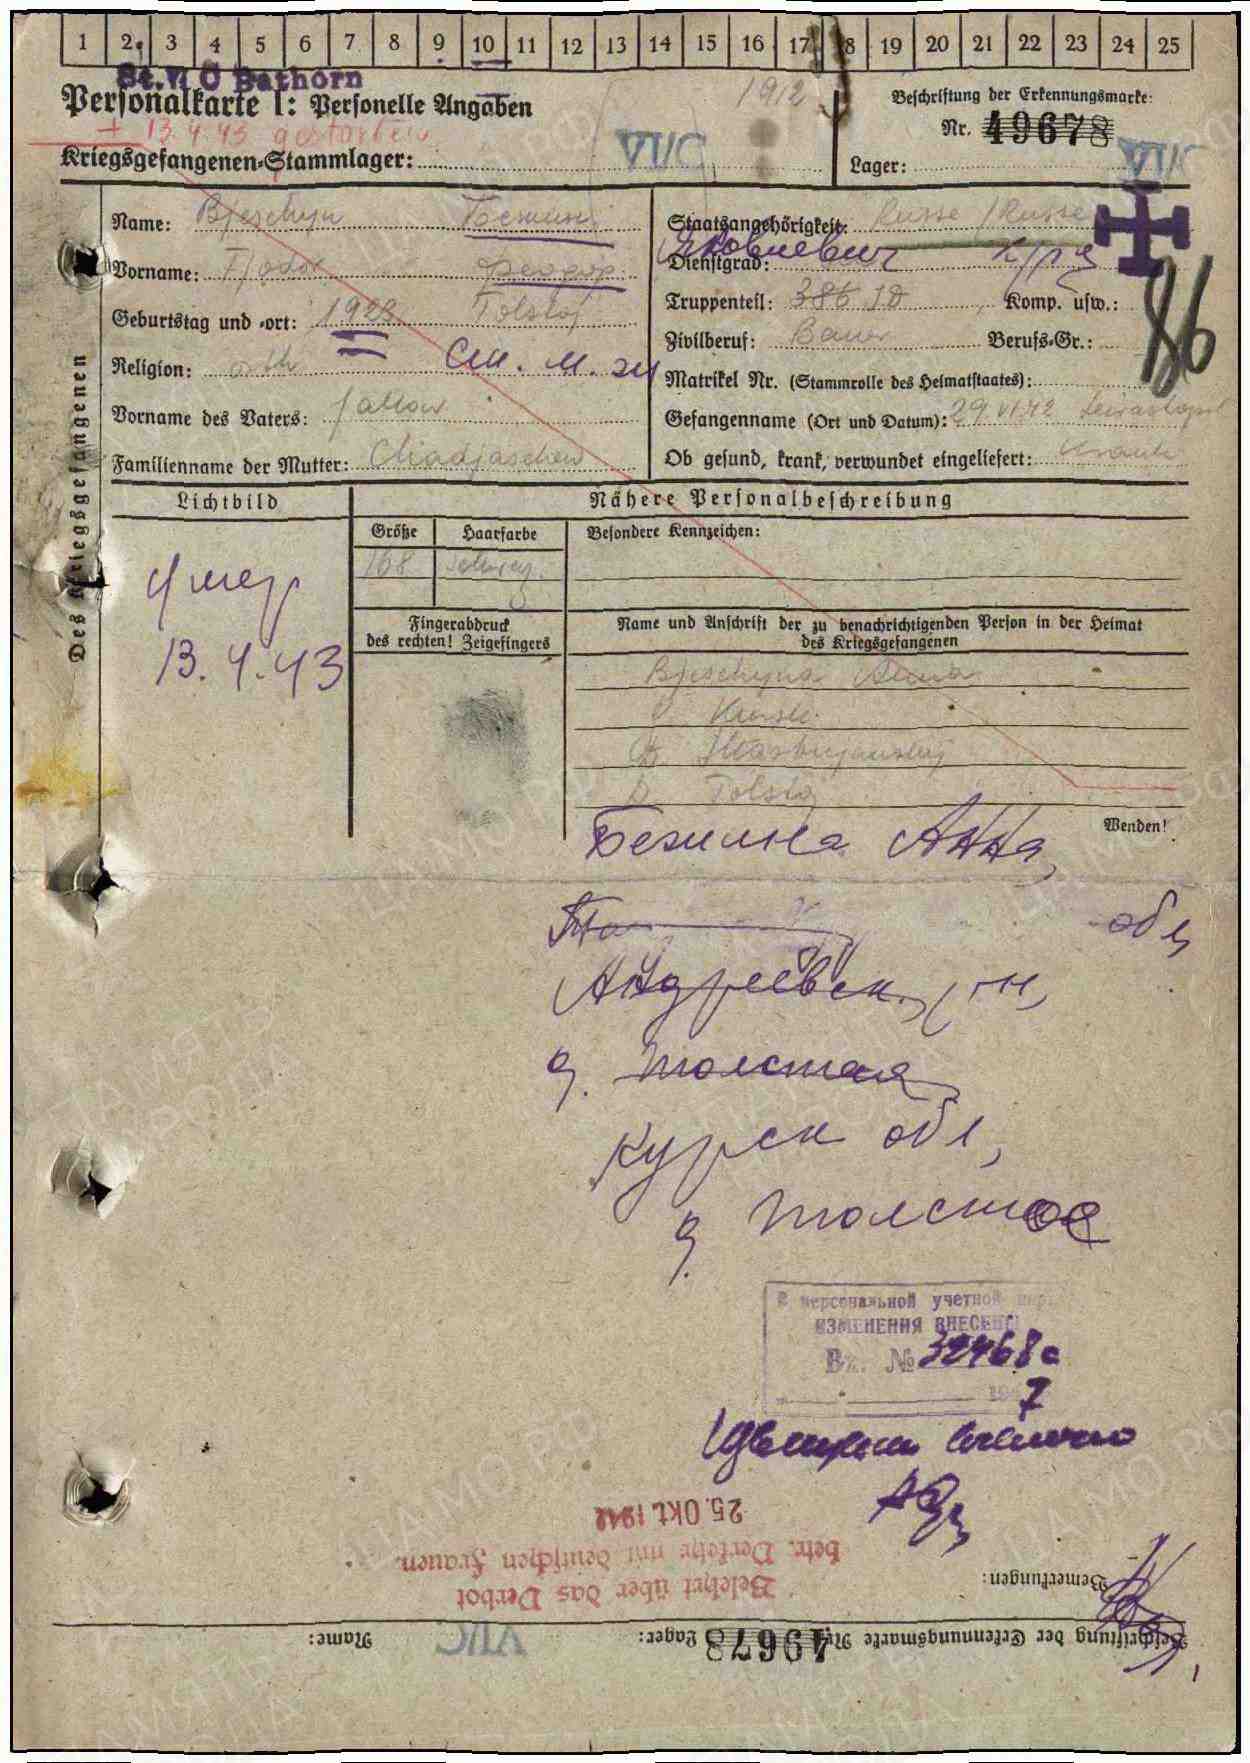 1 2 3 4 5 6 7 8 9 10 11 12 13 14 15 16 17 18 19 20 21 22 23 24 25
St. VI C Bathorn
Personalkarte I: Personelle Angaben
1912
Beschriftung der Erkennungsmarke:
Nr. 49678
+ 13.4.43 gestorben
Kriegsgefangenen-Stammlager: VI/C
Lager: VI/C
Des Kriegsgefangenen
Name: Bjeschyn Бежин
Vorname: Fjodor Феодор
Geburtstag und -ort: 1923 Tolstoj
Religion: orth
Vorname des Vaters: Jakow
Familienname der Mutter:
Staatsangehörigkeit: Russe / Russe
Яковлевич
Dienstgrad:
Truppenteil: 386 ID Komp. usw.:
86
Zivilberuf: Bauer Berufs-Gr.:
Matrikel Nr. (Stammrolle des Heimatstaates):
Gefangenname (Ort und Datum): 29.VI.42 Sewastopol
Ob gesund, krank, verwundet eingeliefert: krank
Lichtbild
умер
13.4.43
Nähere Personalbeschreibung
Größe Haarfarbe Besondere Kennzeichen:
168 schwarz
Fingerabdruck
des rechten! Zeigefingers
Name und Anschrift der zu benachrichtigenden Person in der Heimat
des Kriegsgefangenen
Bjeschyna Anna
Kursk
D. Tolstoj
Wenden!
Бежина Анна,
обл
Андреевск. р-н,
д. Толстая
Курск обл,
д. Толстое
В персональной учетной карте
ИЗМЕНЕНИЯ ВНЕСЕНЫ
Вх. № 32468с
Belehrt über das Verbot
betr. Verkehr mit deutschen Frauen.
25. OKT. 1942
Bemerkungen:
Beschriftung der Erkennungsmarke Nr. 49678 Lager: VI/C Name: